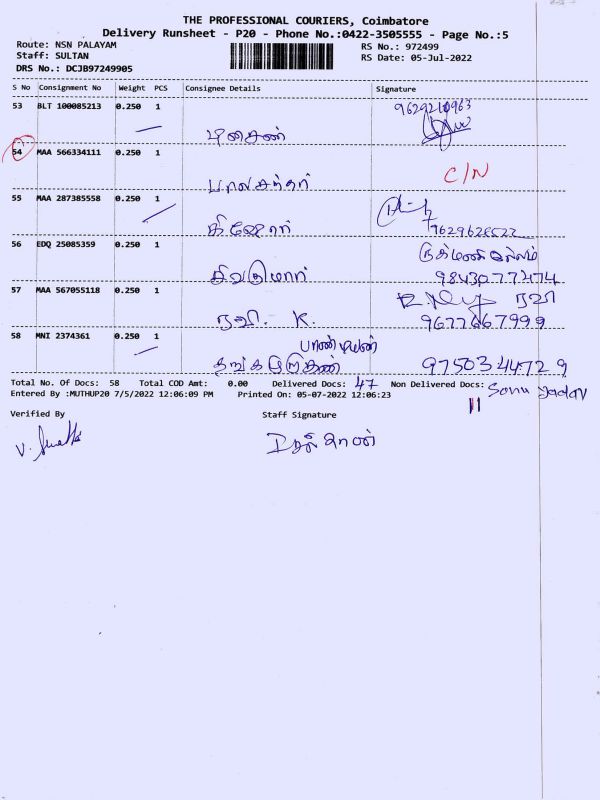 THE PROFESSIONAL COURIERS, Coimbatore
Delivery Runsheet - P20 - Phone No.:0422-3505555 - Page No.:5
Route: NSN PALAYAM
RS No.: 972499
Staff: SULTAN
RS Date: 05-Jul-2022
DRS No.: DCJB97249905
S No Consignment No Weight PCS Consignee Details Signature
53 BLT 100085213 0.250 1
54 MAA 566334111 0.250 1
பாலசந்தர் C/N
55 MAA 287385558 0.250 1
கிஷோர்
56 EDQ 25085359 0.250 1
சிவகுமார் 9843077474
57 MAA 567055118 0.250 1 ரவி
ரவி. K. 9677667999
58 MNI 2374361 0.250 1 பாண்டியன்
தங்கமுருகன்9750344729
Total No. Of Docs: 58 Total COD Amt: 0.00 Delivered Docs: 47 Non Delivered Docs: Sonu Jadav
Entered By :MUTHUP20 7/5/2022 12:06:09 PM Printed On: 05-07-2022 12:06:23 11
Verified By Staff Signature